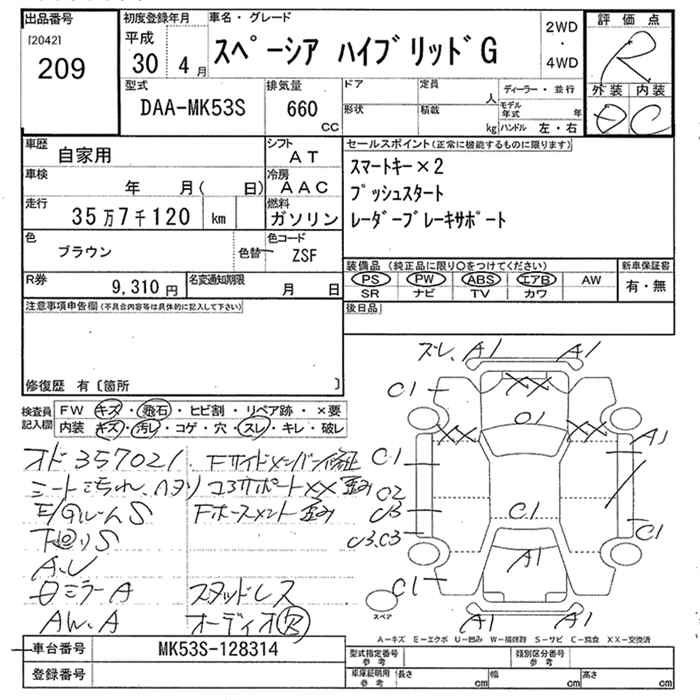 出品番号
[2042]
209
初度登録年月
平成
30年 4月
車名・グレード
スペーシア ハイブリッドG
2WD
・
4WD
評価点
R
外装 内装
D C
型式
DAA-MK53S
排気量
660
cc
ドア
定員
人
形状
積載
kg
ディーラー・並行
モデル年式
年
ハンドル 左・右
車歴
自家用
シフト
AT
車検
年 月( 日)
冷房
AAC
走行
35万7千120 km
燃料
ガソリン
色
ブラウン
色替
色コード
ZSF
R券
9,310 円
名変通知期限
月 日
セールスポイント(正常に機能するものに限ります)
スマートキー×2
プッシュスタート
レーダーブレーキサポート
装備品 (純正品に限り○をつけてください)
新車保証書
PS PW ABS エアB AW
SR ナビ TV カワ
有・無
後日品
注意事項申告欄(不具合内容等は具体的に記入して下さい)
修復歴 有〔箇所 〕
検査員
記入欄
FW キズ・飛石・ヒビ割・リペア跡・×要
内装 キズ・汚レ・コゲ・穴・スレ・キレ・破レ
オド357021
シートよごれ、ヘタリ
E/GルームS
下廻りS
A.U
ミラーA
AW.A
Fサイドメンバー修正
コアサポートXX歪み
Fホースメント歪み
スタッドレス
オーディオR
ズレ、A1
A1
C1
XX
C1
XX
XX
A1
C1
C2
C3
C1
C3.C3
C1
A1
C1
A1
A1
スペア
A-キズ E-エクボ U-凹み W-補修跡 S-サビ C-腐食 XX-交換済
車台番号
MK53S-128314
登録番号
型式指定番号
参考
類別区分番号
参考
車庫証明用
参考
長さ
cm
幅
cm
高さ
cm